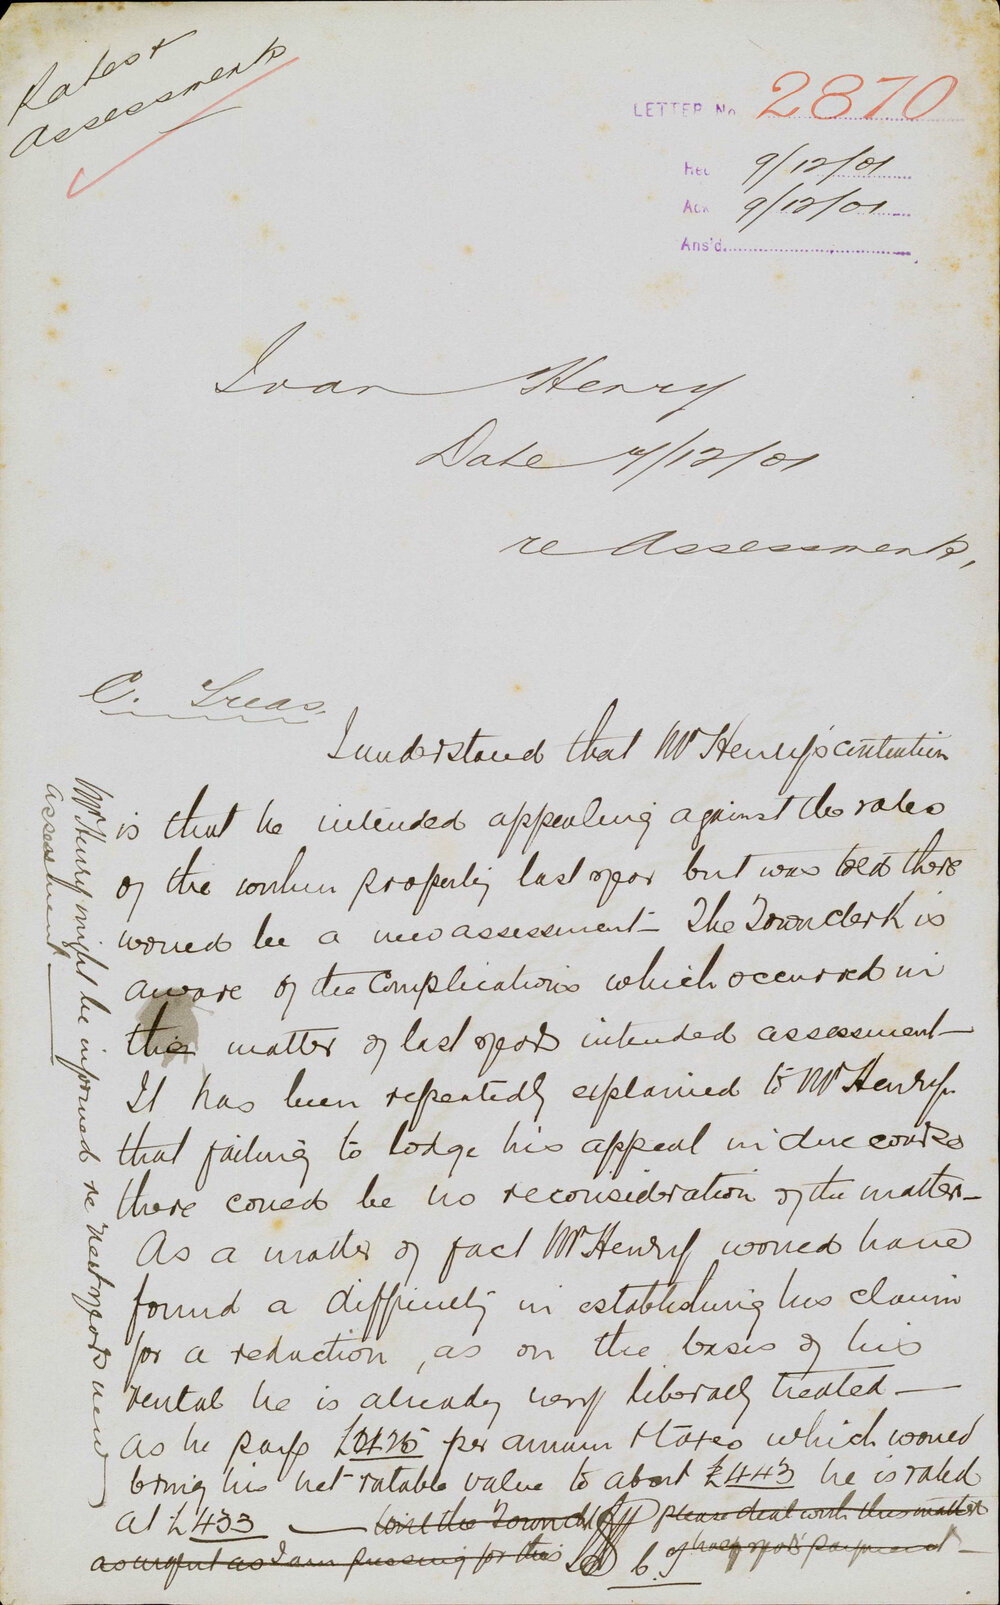 Rates &
Assessments
LETTER No 2870
Rec 9/12/01
Ack 9/12/01
Ans'd
Ivan Henry
Date 7/12/01
re Assessments,
C. Treas.
I understand that Mr Henry's contention
is that he intended appealing against the rates
of the within property last year but was told there
would be a new assessment - The Town clerk is
aware of the complications which occurred in
this matter of last years intended assessment -
It has been repeatedly explained to Mr Henry
that failing to lodge his appeal in due course
there could be no reconsideration of the matter -
As a matter of fact Mr Henry would have
found a difficulty in establishing his claim
for a reduction, as on the basis of his
rental he is already very liberally treated -
as he pays £425 per annum & taxes which would
bring his net ratable value to about £443 he is rated
at £433 - will the Town clk please deal with this matter
as urgent as I am pressing for this half year's payment -
Mr Henry might be informed re next years new
assessment